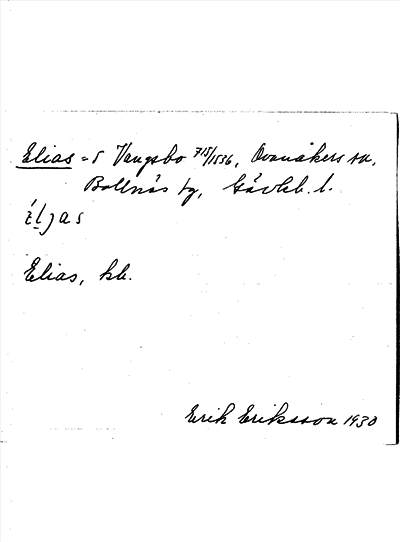 Elias = 5 Vängsbo 715/1536, Ovanåkers sn,
Bollnäs tg, Gävleb. l.
éljas
Elias, kb.
Erik Eriksson 1930